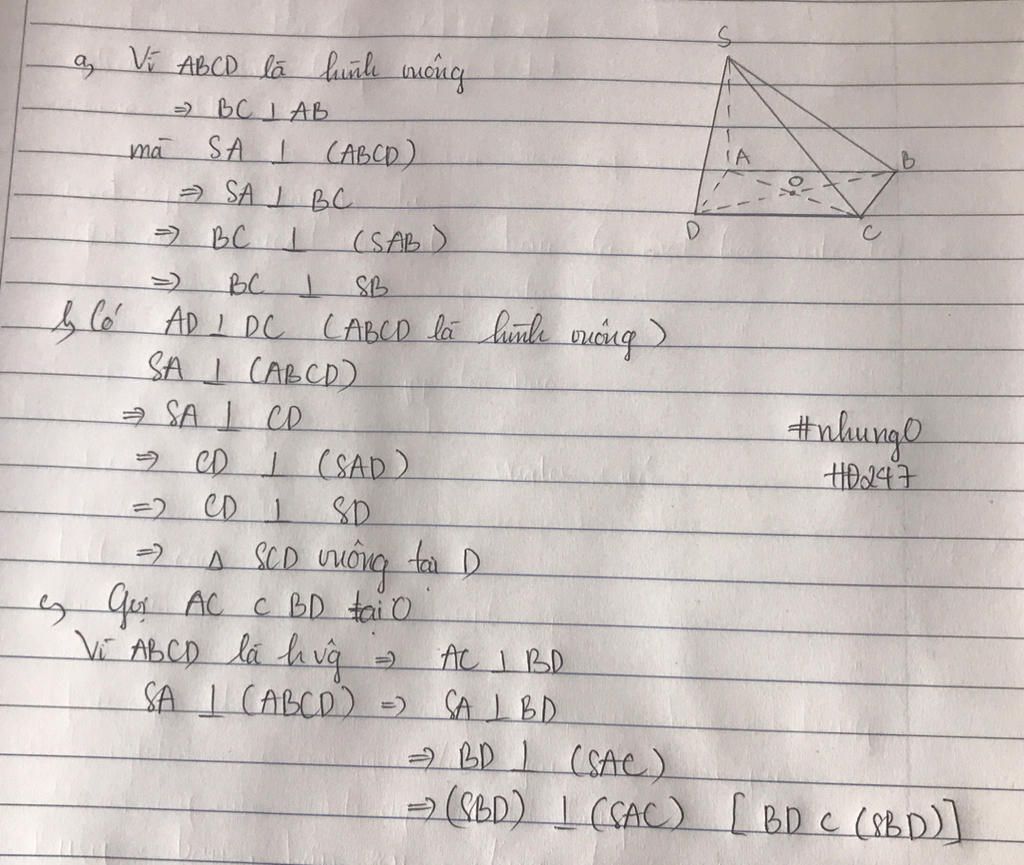 a, Vì ABCD là hình vuông
⇒ BC ⊥ AB
mà SA ⊥ (ABCD)
⇒ SA ⊥ BC
⇒ BC ⊥ (SAB)
⇒ BC ⊥ SB
b, Có AD ⊥ DC (ABCD là hình vuông)
SA ⊥ (ABCD)
⇒ SA ⊥ CD
⇒ CD ⊥ (SAD)
⇒ CD ⊥ SD
⇒ Δ SCD vuông tại D
c, Gọi AC ⊂ BD tại O
Vì ABCD là hvg ⇒ AC ⊥ BD
SA ⊥ (ABCD) ⇒ SA ⊥ BD
⇒ BD ⊥ (SAC)
⇒ (SBD) ⊥ (SAC) [BD ⊂ (SBD)]
S
A
B
O
D
C
#nhung0
HĐ247